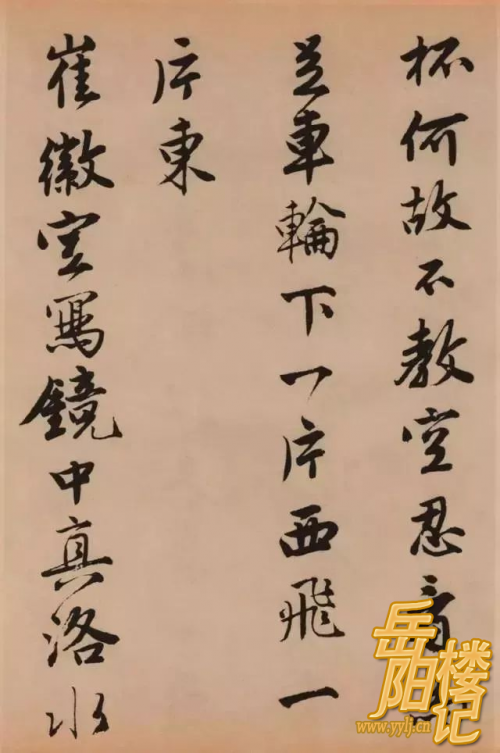 杯何故不教空忍看
足車輪下一片西飛一
片東
崔徽空寫鏡中真洛水
岳阳楼记
www.yylj.cn